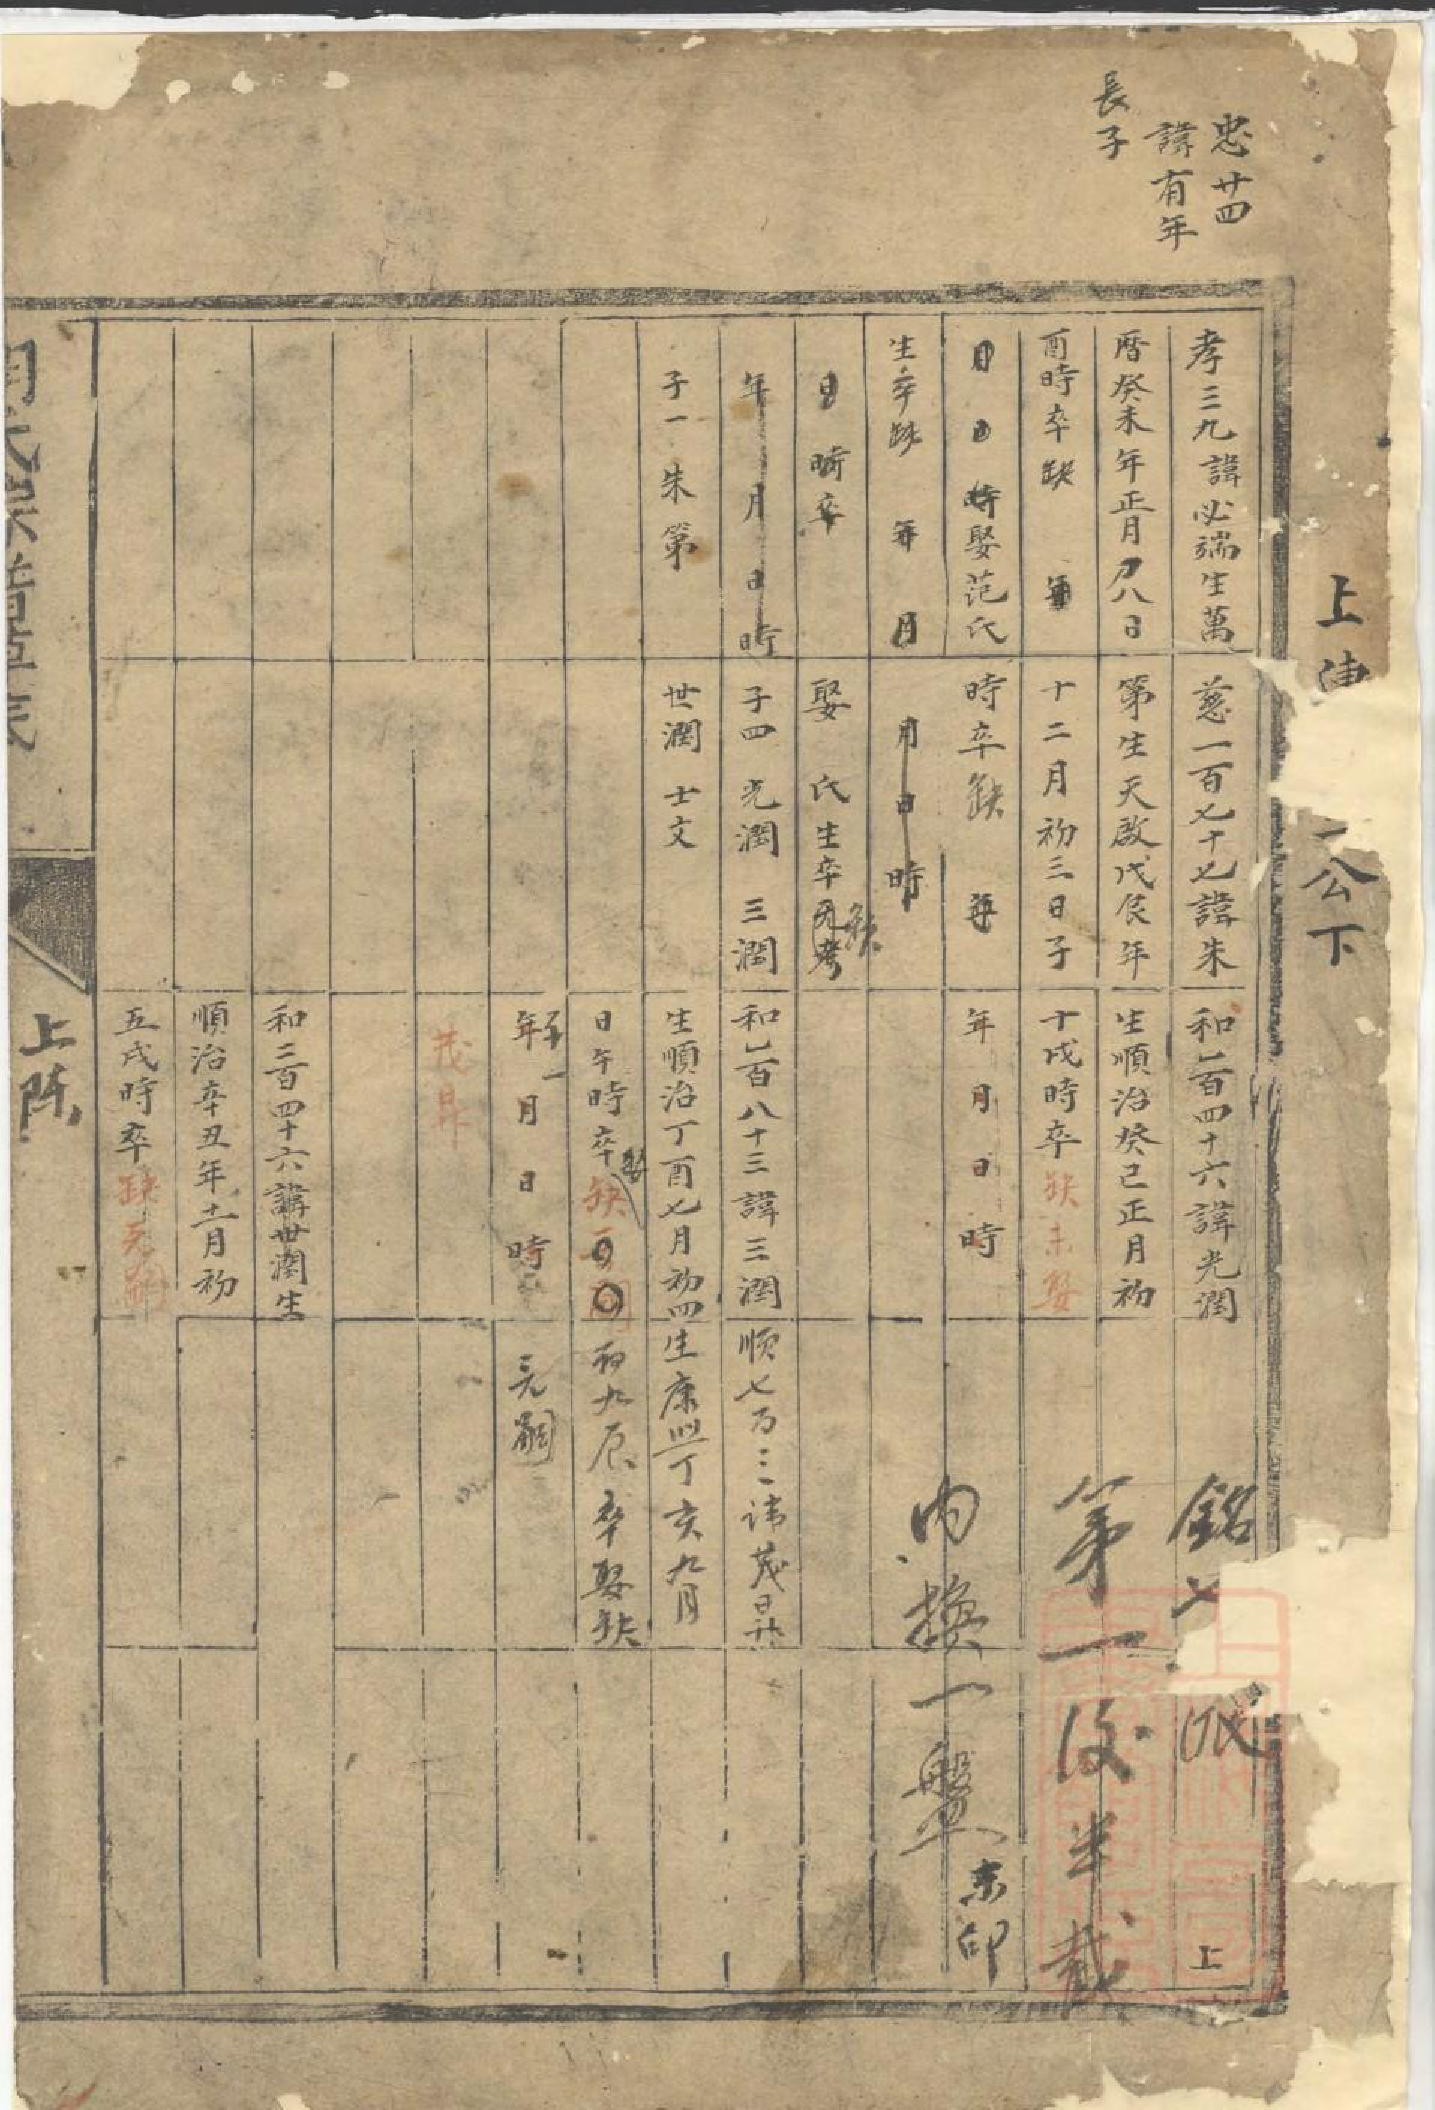 上
公下
忠廿四
諱有年
長子
孝三九諱必端生萬
曆癸未年正月初八日
酉時卒缺 年
月日時娶范氏
生卒缺 年 月
日時卒
年月日時
子一 朱第
慈一百七十七諱朱
第生天啟戊辰年
十二月初三日子
時卒缺 年
月日時
娶 氏生卒缺
子四 光潤 三潤
世潤 士文
和二百四十六諱光潤
生順治癸巳正月初
十戌時卒缺未娶
年月日時
和二百八十三諱三潤
生順治丁酉七月初四
日午時卒娶缺
年月日時
茂昇
和三百四十六諱世潤生
順治辛丑年十二月初
五戌時卒缺无嗣
順七百三諱茂昇
生康熙丁亥九月
初九辰 卒娶缺
无嗣
銘七
第一後半截
內換一盤
未印
上
上陳